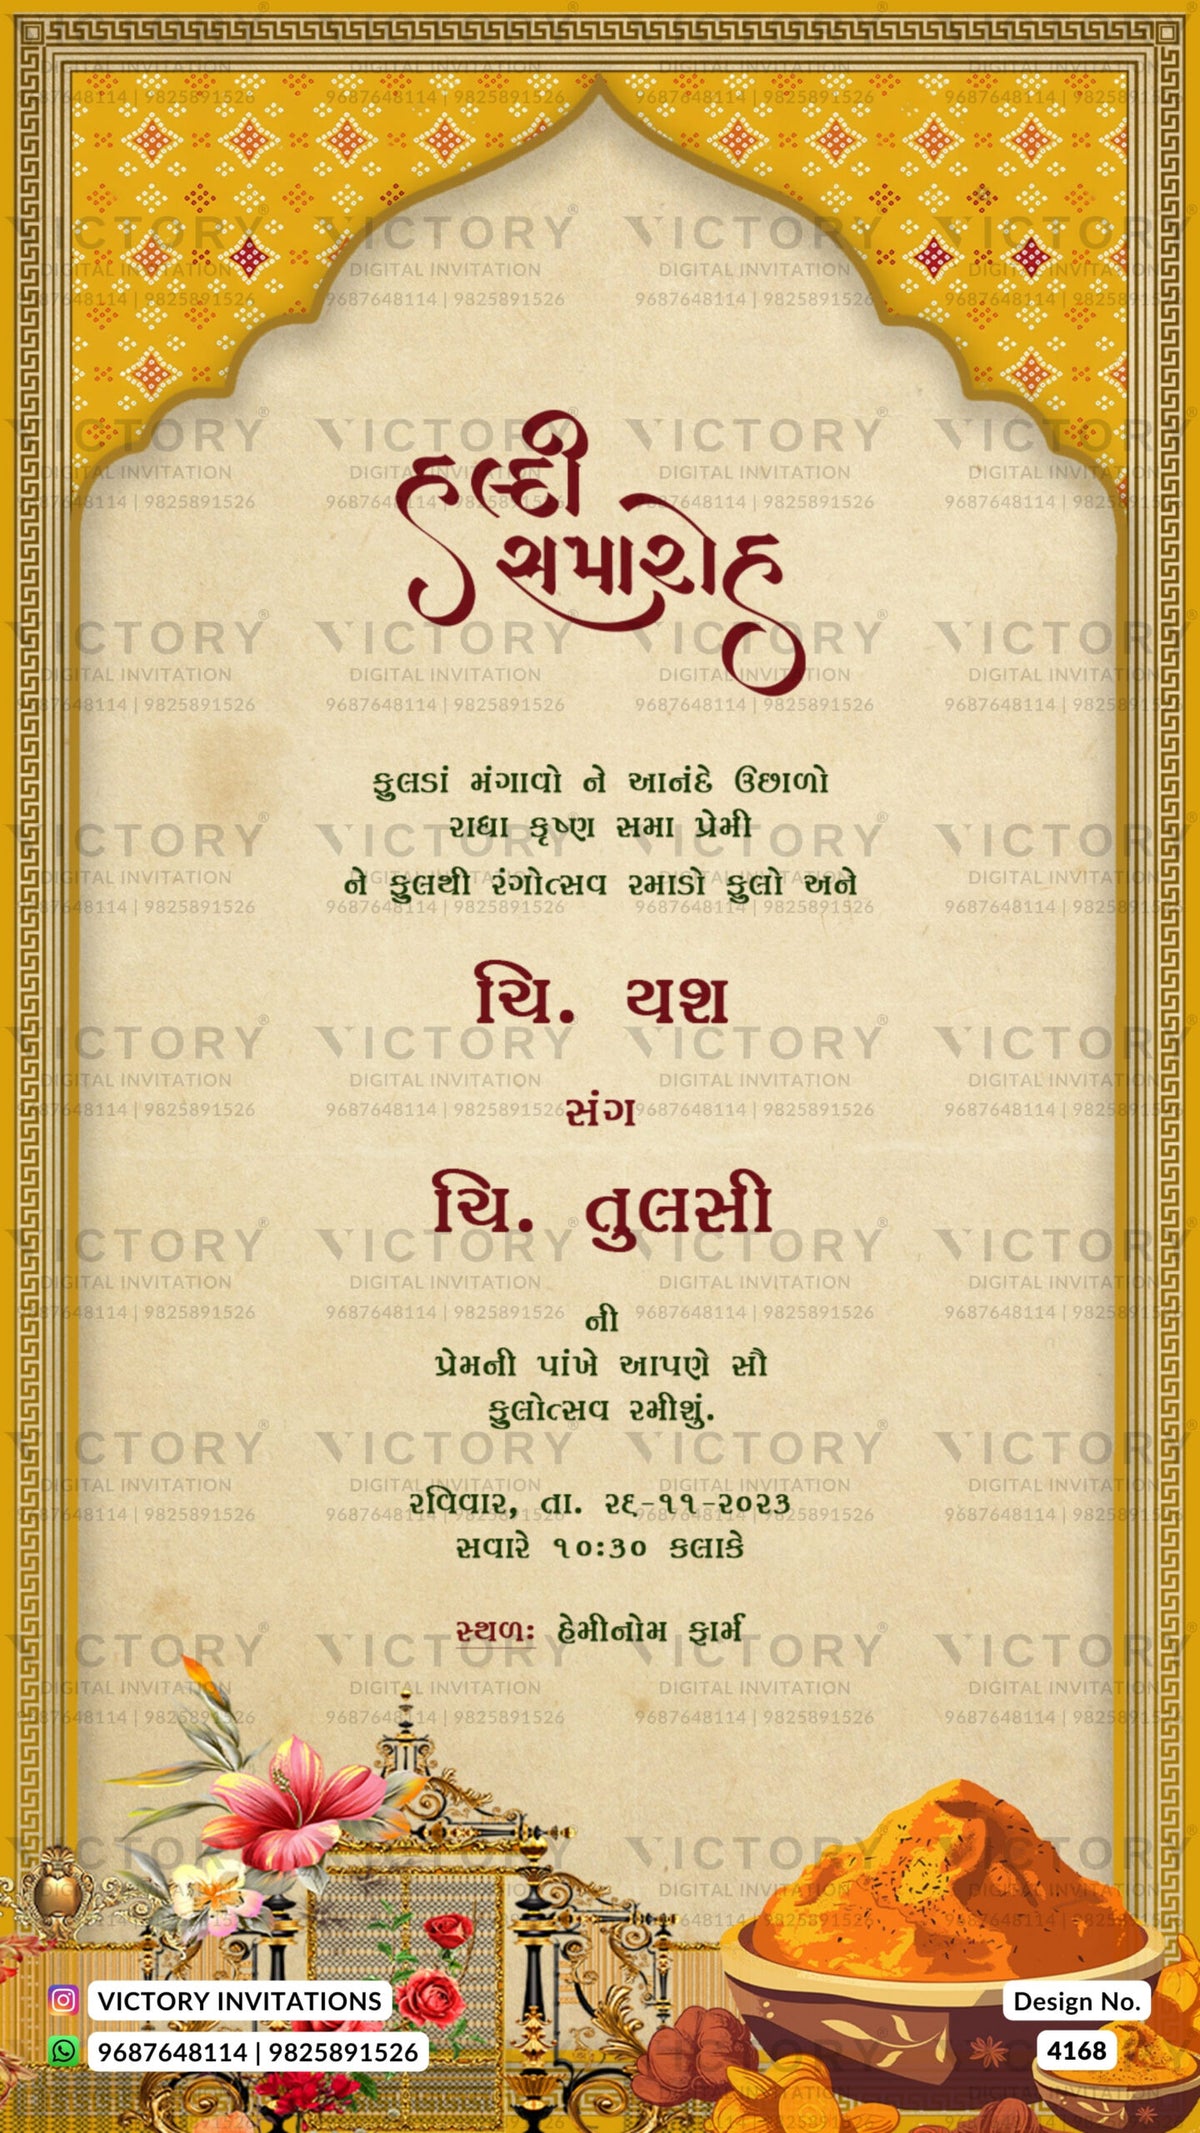 હલ્દી
સમારોહ
ફુલડાં મંગાવો ને આનંદે ઉછાળો
રાધા કૃષ્ણ સમા પ્રેમી
ને ફુલથી રંગોત્સવ રમાડો ફુલો અને
ચિ. યશ
સંગ
ચિ. તુલસી
ની
પ્રેમની પાંખે આપણે સૌ
ફુલોત્સવ રમીશું.
રવિવાર, તા. ૨૬-૧૧-૨૦૨૩
સવારે ૧૦:૩૦ કલાકે
સ્થળ: હેમીનોમ ફાર્મ
VICTORY INVITATIONS
9687648114 | 9825891526
Design No.
4168
VICTORY®
DIGITAL INVITATION
9687648114 | 9825891526